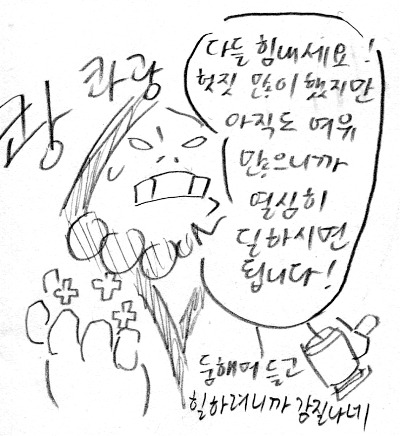 콰광
쾅
다들 힘내세요!
헛짓 많이 했지만
아직도 여유
많으니까
열심히
딜하시면
됩니다!
둠해머 들고
힐하려니까 감질나네